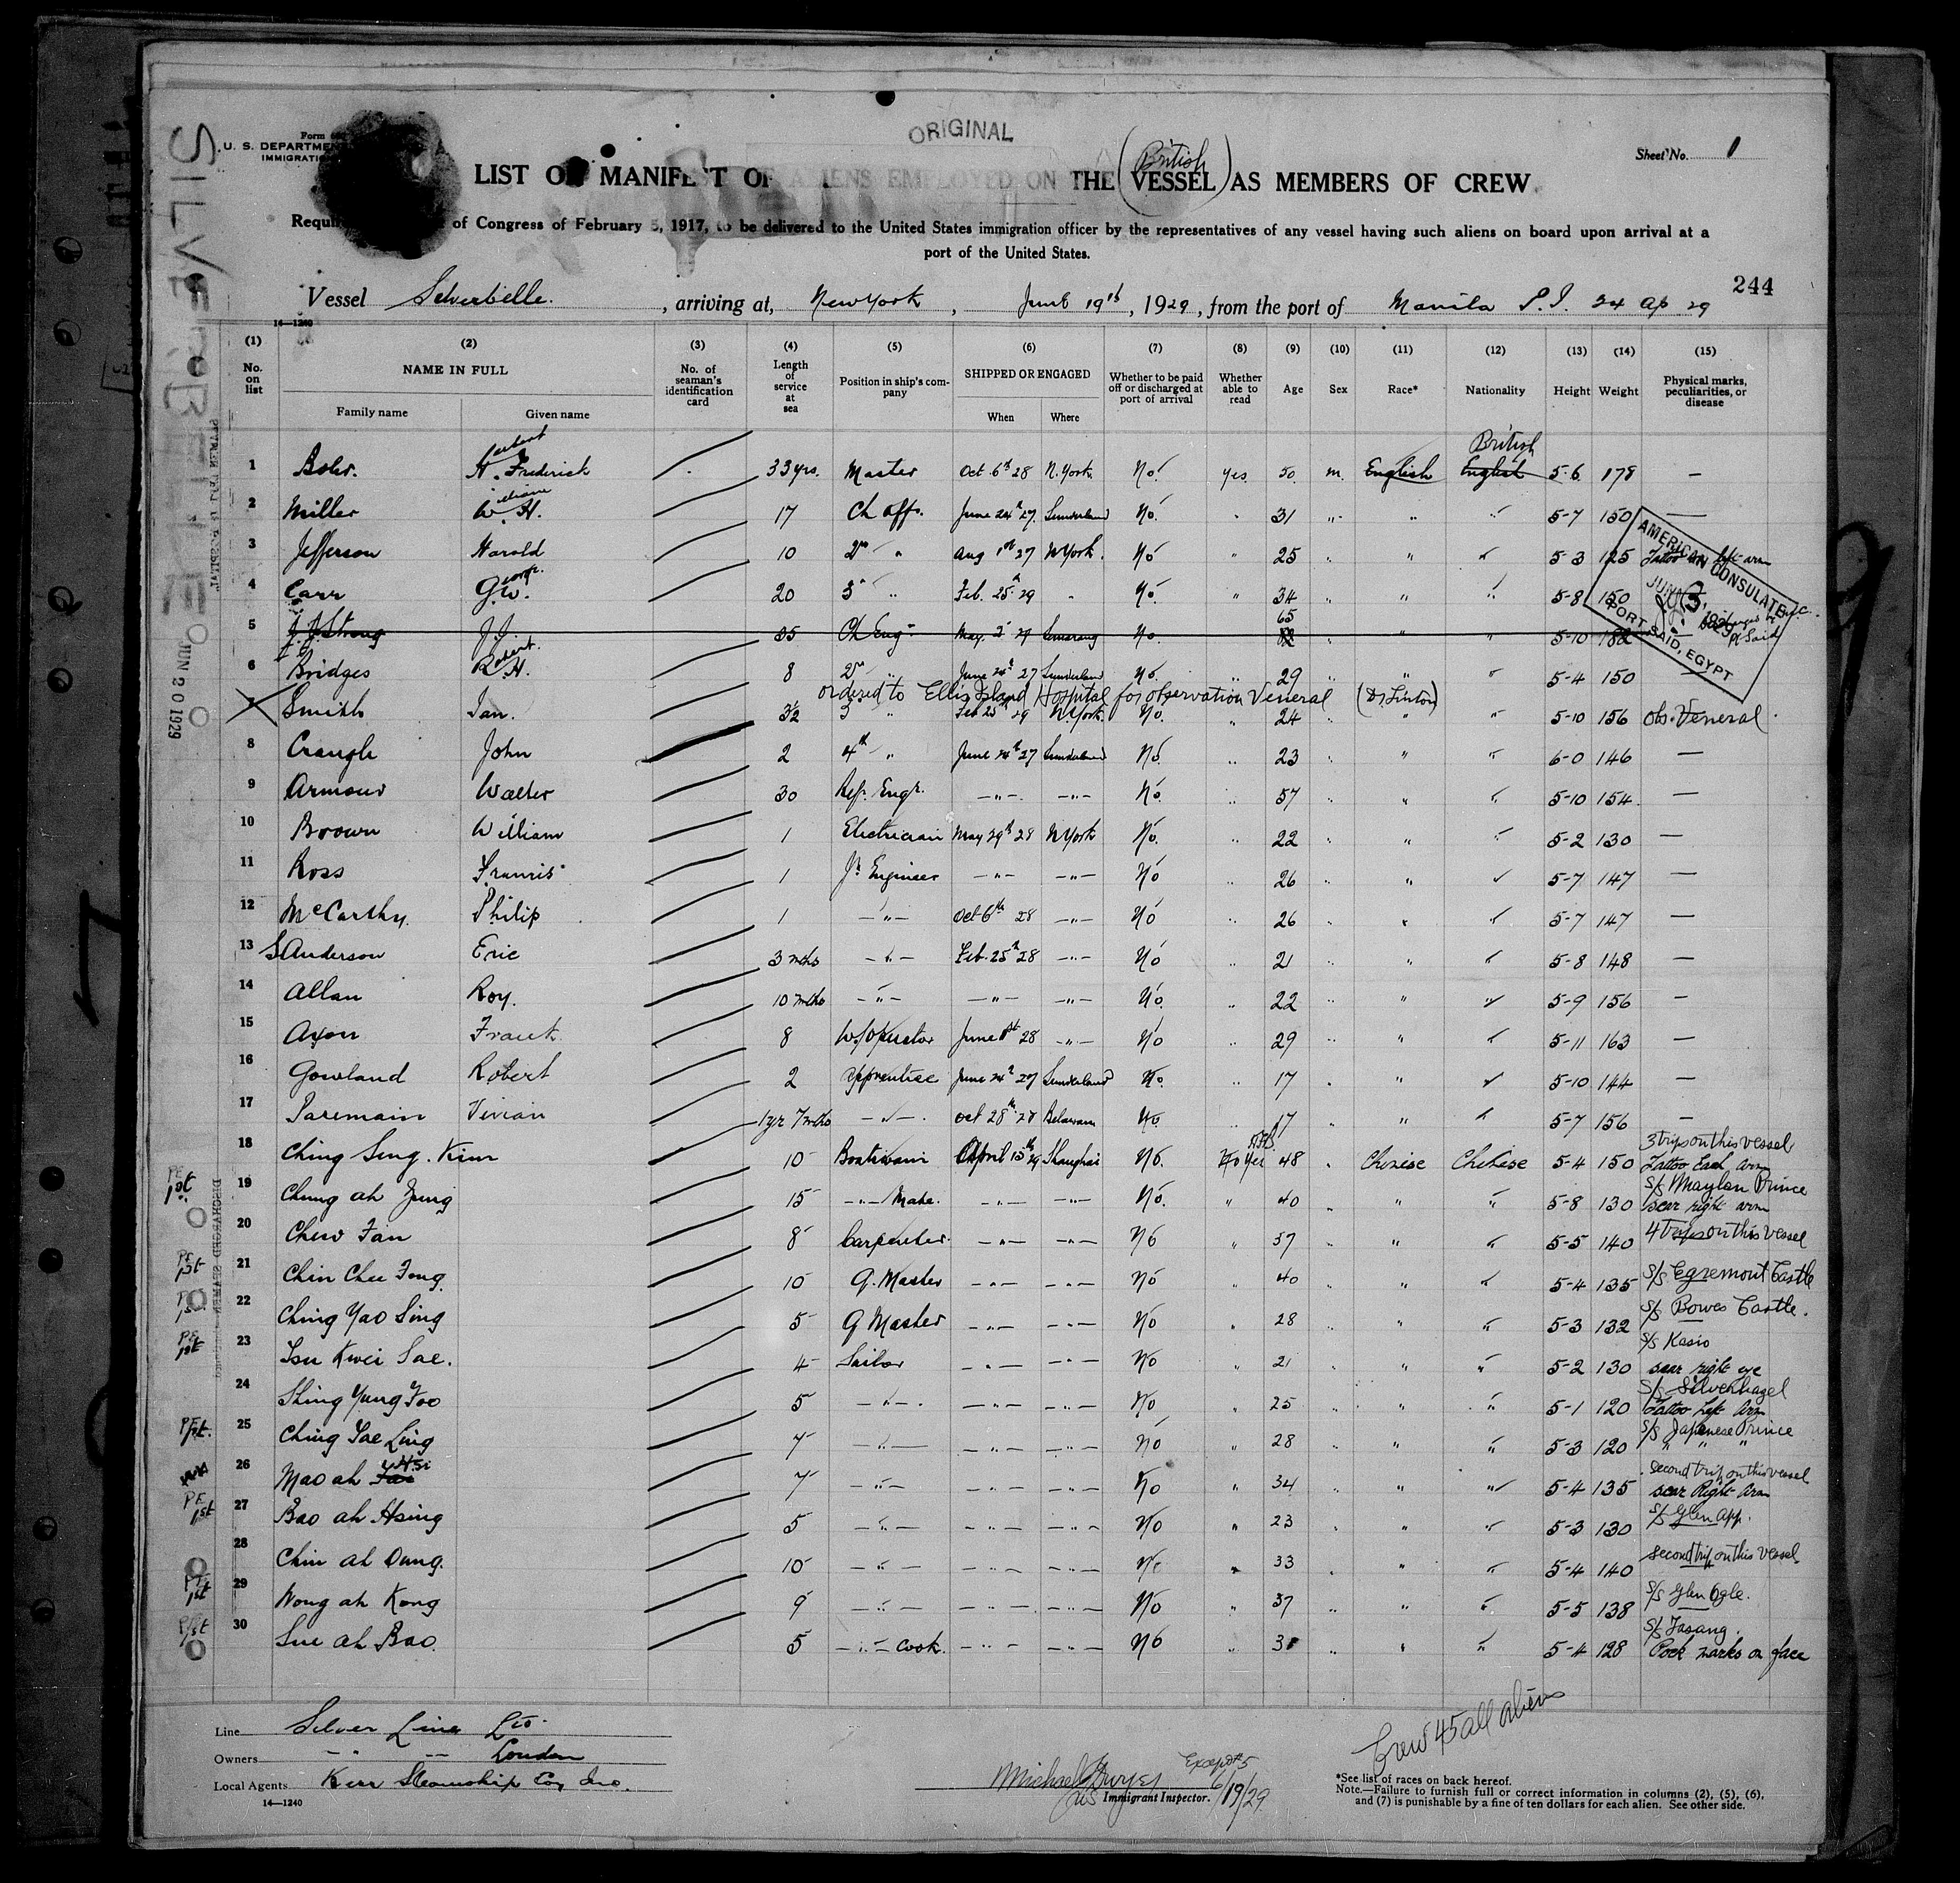 ORIGINAL
Form
U. S. DEPARTMEN
IMMIGRATIO
Sheet No. 1
British
LIST O MANIFE T OF ALIENS EMPLOYED ON THE (VESSEL) AS MEMBERS OF CREW
Requir of Congress of February 5, 1917, to be delivered to the United States immigration officer by the representatives of any vessel having such aliens on board upon arrival at a
port of the United States.
244
Vessel Silverbelle, arriving at, New York, June 19th, 1929, from the port of Manila P.I. 24 Ap 29
14—1240
SILVERBELLE
JUN 20 1929
(1) (2) (3) (4) (5) (6) (7) (8) (9) (10) (11) (12) (13) (14) (15)
No. on list
NAME IN FULL
Family name Given name
No. of seaman's identification card
Length of service at sea
Position in ship's company
SHIPPED OR ENGAGED
When Where
Whether to be paid off or discharged at port of arrival
Whether able to read
Age Sex Race* Nationality Height Weight
Physical marks, peculiarities, or disease
British
1 H. Frederick 33 yrs. Master Oct 6th 28 N. York No. Yes 50 m. English English 5-6 178 —
2 Miller W. H. 17 Ch Off. June 24th 27 Sunderland No. " 31 " " " 5-7 150 —
3 Jefferson Harold 10 2nd " Aug 1st 27 N York. No " 25 " " " 5-3 125 Tattoo left arm
4 Carr G.W. 20 3rd " Feb. 25th 29 " No. " 34 " " " 5-8 150
65
5 J.J. Strong J.J. 35 Ch Engr May. 2 27 Semarang No. " " 5-10 182
AMERICAN CONSULATE
JUN 3, 1929
PORT SAID, EGYPT
6 Bridges R.H. 8 2nd " June 24th 27 Sunderland No. " 29 " " " 5-4 150 —
ordered to Ellis Island Hospital for observation Veneral (Dr. Linton)
7 Smith Ian. 3½ 3 " Feb 25th 29 N. York. No. " 24 " " " 5-10 156 obs. Veneral
8 Craugh John 2 4th " June 24th 27 Sunderland No. " 23 " " " 6-0 146 —
9 Armour Walter 30 Ref. Engr. — " — — " — No. " 57 " " " 5-10 154 —
10 Brown William 1 Electrician May 29th 28 N York No. " 22 " " " 5-2 130 —
11 Ross Francis 1 Jr. Engineer — " — — " — No " 26 " " " 5-7 147 —
12 McCarthy. Philip 1 — " — Oct 6th 28 — " — No " 26 " " " 5-7 147 —
13 Sanderson Eric 3 mths — " — Feb. 25th 28 — " — No " 21 " " " 5-8 148 —
14 Allan Roy. 10 mths — " — — " — — " — No. " 22 " " " 5-9 156 —
15 Axon Frank 8 W/Operator June 1st 28 — " — No " 29 " " " 5-11 163 —
16 Gowland Robert 2 Apprentice June 24th 27 Sunderland No. " 17 " " " 5-10 144 —
17 Paremain Vivian 1 yr 7 mths — " — Oct 28th 27 Belawan No " 17 " " " 5-7 156 —
3 trips on this vessel
18 Ching Sing. Kim 10 Boatswain April 15th 29 Shanghai No. No Yes 48 " Chinese Chinese 5-4 150 Tattoo Each Arm
S/S Malayan Prince
19 Chung ah Jung 15 — " — Mate. — " — — " — No. " 40 " " " 5-8 130 scar right arm
20 Chew Fan 8 Carpenter — " — — " — No " 57 " " " 5-5 140 4 Trips on this vessel
21 Chin Chee Fong. 10 Q. Master — " — — " — No " 40 " " " 5-4 135 S/S Egremont Castle
22 Ching Yao Sing 5 Q Master — " — — " — No " 28 " " " 5-3 132 S/S Bowes Castle.
S/S Kasio
23 Tsu Kwei Sae. 4 Sailor — " — — " — No " 21 " " " 5-2 130 scar right eye
S/S Silverhazel
24 Shing Yung Foo 5 — " — — " — — " — No " 25 " " " 5-1 120 Tattoo Left Arm
S/S Japanese Prince
25 Ching Sae Ling 7 — " — — " — — " — No " 28 " " " 5-3 120 " " "
second trip on this vessel
26 Mao ah 7 — " — — " — — " — No " 34 " " " 5-4 135 scar Right Arm
27 Bao ah Hsing 5 — " — — " — — " — No " 23 " " " 5-3 130 S/S Glen App.
28 Chin ah Dung. 10 — " — — " — — " — No " 33 " " " 5-4 140 second trip on this vessel
29 Wong ah Kong 9 — " — — " — — " — No " 37 " " " 5-5 138 S/S Glen Ogle.
S/S Fasang.
30 Sue ah Bao 5 — " — cook. — " — — " — No " " " " 5-4 128 Pock marks on face
Line Silver Line Ltd.
Owners — " — London
Local Agents Kerr Steamship Coy Inc.
14—1240
Crew 45 all aliens
Except #5
Michael Dwyer
US Immigrant Inspector. 6/19/29
*See list of races on back hereof.
Note.—Failure to furnish full or correct information in columns (2), (5), (6),
and (7) is punishable by a fine of ten dollars for each alien. See other side.